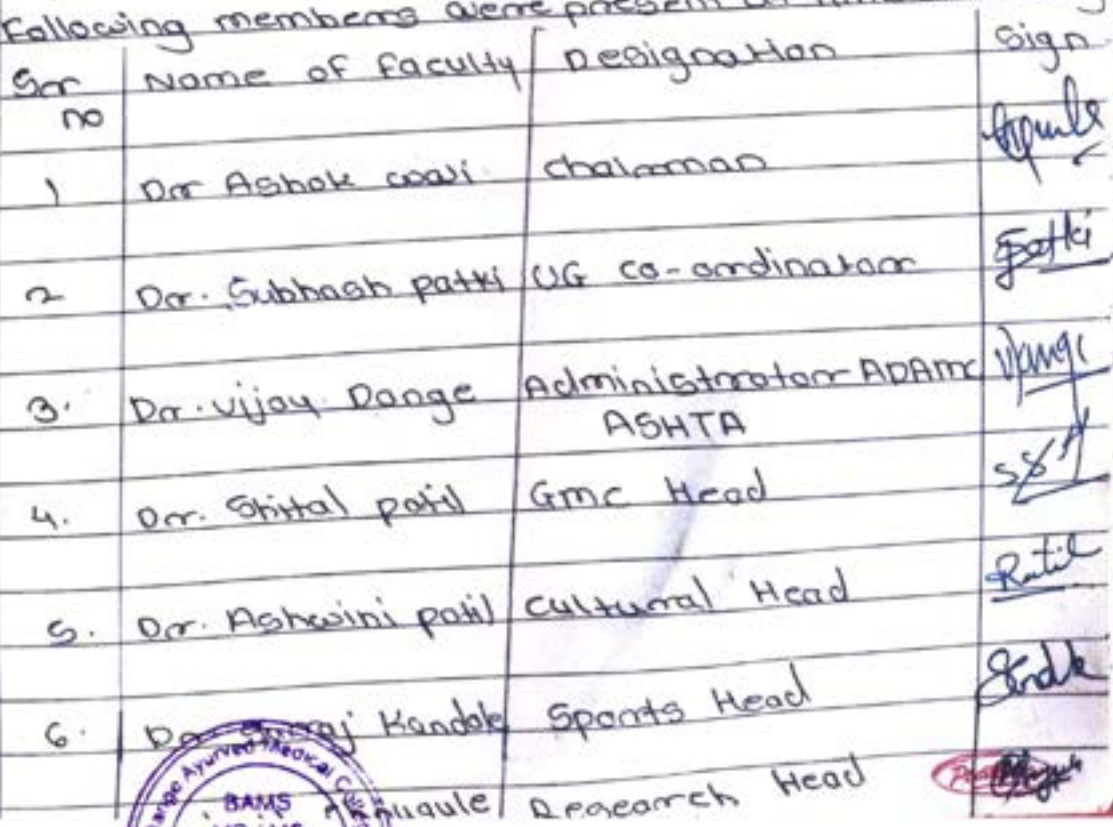 Following members were present
Sr Name of faculty Designation Sign.
no
1 Dr Ashok wali chairman
2 Dr. Subhash patki UG co-ordinator Patki
3. Dr. vijay Dange Administrator ADAMC
ASHTA
4. Dr. Shital patil Gmc Head
5. Dr. Ashwini patil cultural Head Patil
6. Dr Kandale Sports Head
Research Head
Ayurved Medical
BAMS